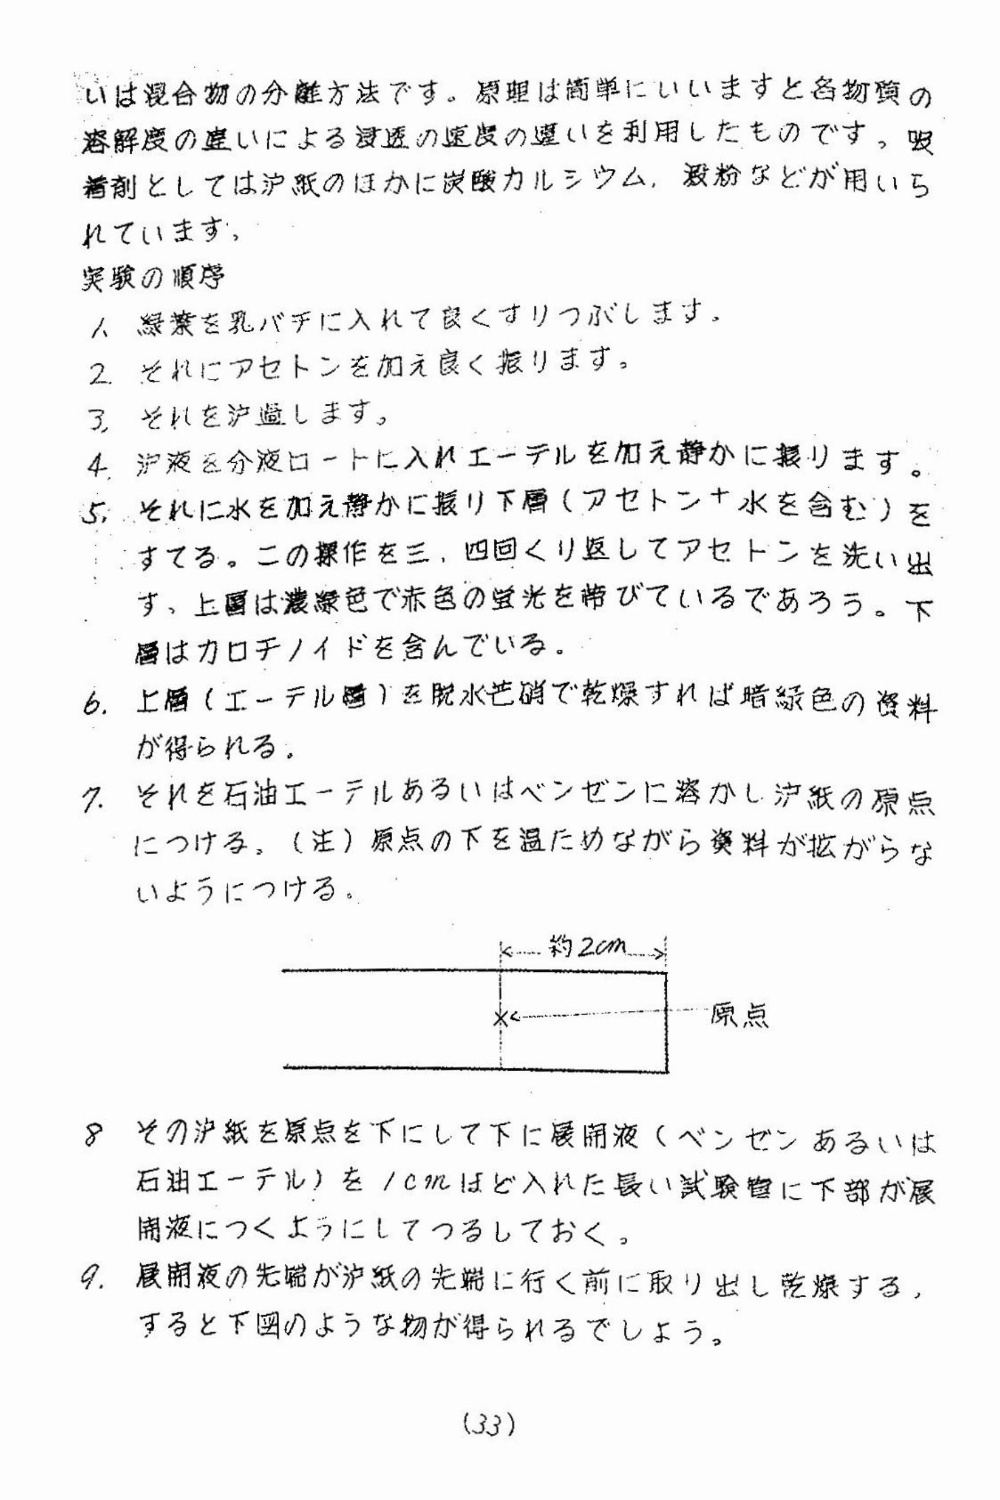 いは混合物の分離方法です。原理は簡単にいいますと各物質の
溶解度の違いによる浸透の速度の違いを利用したものです。吸
着剤としては沪紙のほかに炭酸カルシウム，澱粉などが用いら
れています。
実験の順序
1. 緑葉を乳バチに入れて良くすりつぶします。
2. それにアセトンを加え良く振ります。
3. それを沪過します。
4. 沪液を分液ロートに入れエーテルを加え静かに振ります。
5. それに水を加え静かに振り下層（アセトン＋水を含む）を
すてる。この操作を三，四回くり返してアセトンを洗い出
す。上層は濃緑色で赤色の蛍光を帯びているであろう。下
層はカロチノイドを含んでいる。
6. 上層（エーテル層）を脱水芒硝で乾燥すれば暗緑色の資料
が得られる。
7. それを石油エーテルあるいはベンゼンに溶かし沪紙の原点
につける。（注）原点の下を温ためながら資料が拡がらな
いようにつける。
約2cm
原点
8 その沪紙を原点を下にして下に展開液（ベンゼンあるいは
石油エーテル）を1cmほど入れた長い試験管に下部が展
開液につくようにしてつるしておく。
9. 展開液の先端が沪紙の先端に行く前に取り出し乾燥する，
すると下図のような物が得られるでしょう。
(33)